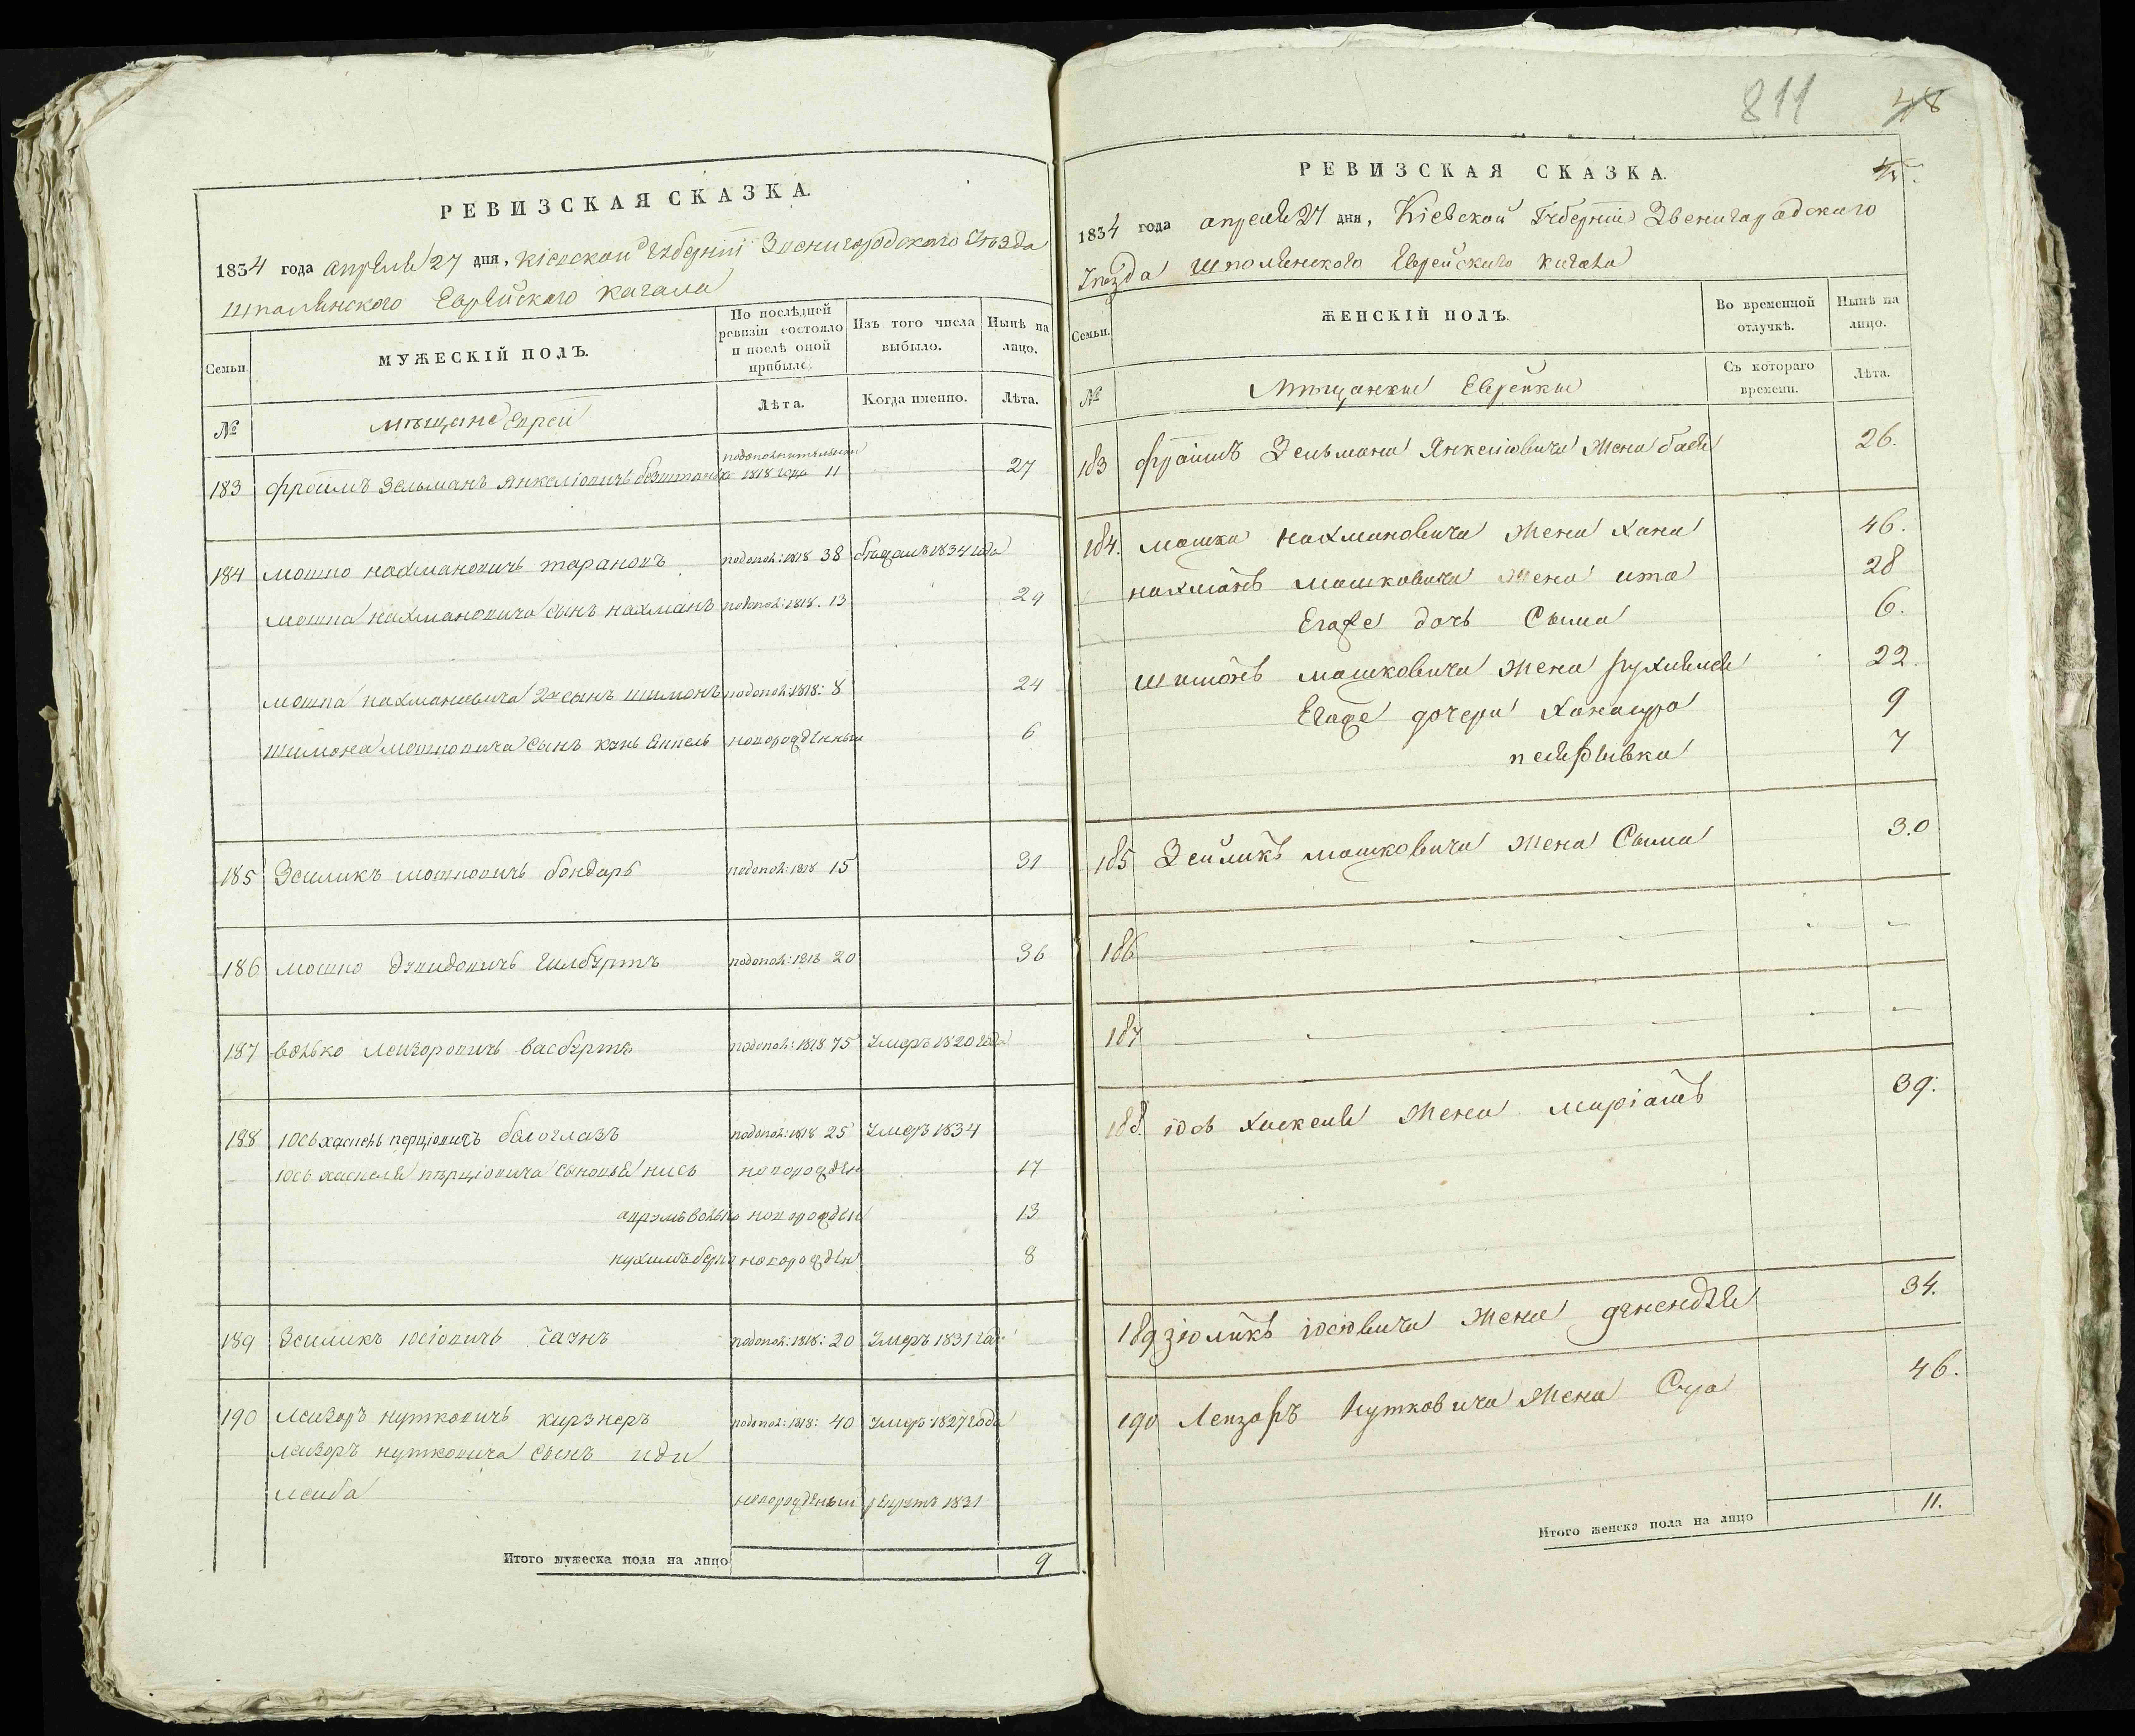 РЕВИЗСКАЯ СКАЗКА.
1834 года апреля 27 дня, Кіевской Губерніи Звенигородского Уѣзда
Шполянского Еврейского кагала
Семьи.
МУЖЕСКІЙ ПОЛЪ.
По послѣдней ревизіи состояло и послѣ оной прибыло.
Изъ того числа выбыло.
Нынѣ на лицо.
№
мѣщане Евреи
Лѣта.
Когда именно.
Лѣта.
183 фроимъ Зельманъ Янкеліовичъ 1818 года 11 27
184 мошко нахмановичъ тарановъ подопол: 1818 38 1834 года
мошка нахмановича сынъ нахманъ подопол: 1818. 13 29
мошка нахмановича 2й сынъ шимонъ подопол: 1818: 8 24
шимона мошковича сынъ Янкель новорожденный 6
185 Зейликъ мошковичъ бондарь подопол: 1818 15 31
186 мошко дувидовичъ гилбуртъ подопол: 1818 20 36
187 волько лейзоровичъ васбуртъ подопол: 1818 75 Умеръ 1820 года
188 іось хаскель перціовичъ белоглазъ подопол: 1818 25 Умеръ 1834
іось хаскеля перціовича сыновья нись новорожден 17
аврумъ волько новорожден 13
нухимъ берко новорожден 8
189 Зейликъ іосіовичъ подопол: 1818: 20 Умеръ 1831 года
190 лейзоръ нутковичъ кирзнеръ подопол: 1818: 40 Умеръ 1827 года
лейзоръ нутковича сынъ иди
лейба новорожденый 1831
Итого мужеска пола на лицо 9
811 48
РЕВИЗСКАЯ СКАЗКА.
1834 года апреля 27 дня, Кіевской Губерніи Звенигородского
Уѣзда Шполянского Еврейского кагала
Семьи.
ЖЕНСКІЙ ПОЛЪ.
Во временной отлучкѣ.
Нынѣ на лицо.
№
Мѣщанки Еврейки
Съ котораго времени.
Лѣта.
183 фроимъ Зельмана Янкеліовича жена бася 26.
184. мошка нахмановича жена хана 46.
нахманъ мошковича жена ита 28
Егоже дочь Сыма 6.
шимонъ мошковича жена рухля 22
Егоже дочери ханасура 9
7
185 Зейликъ мошковича жена Сыма 30
186
187
188. іось хаскеля жена маріамъ 39.
189 зіоликъ іосіовича жена 34.
190 Лейзоръ Нутковича жена Сура 46.
Итого женска пола на лицо 11.